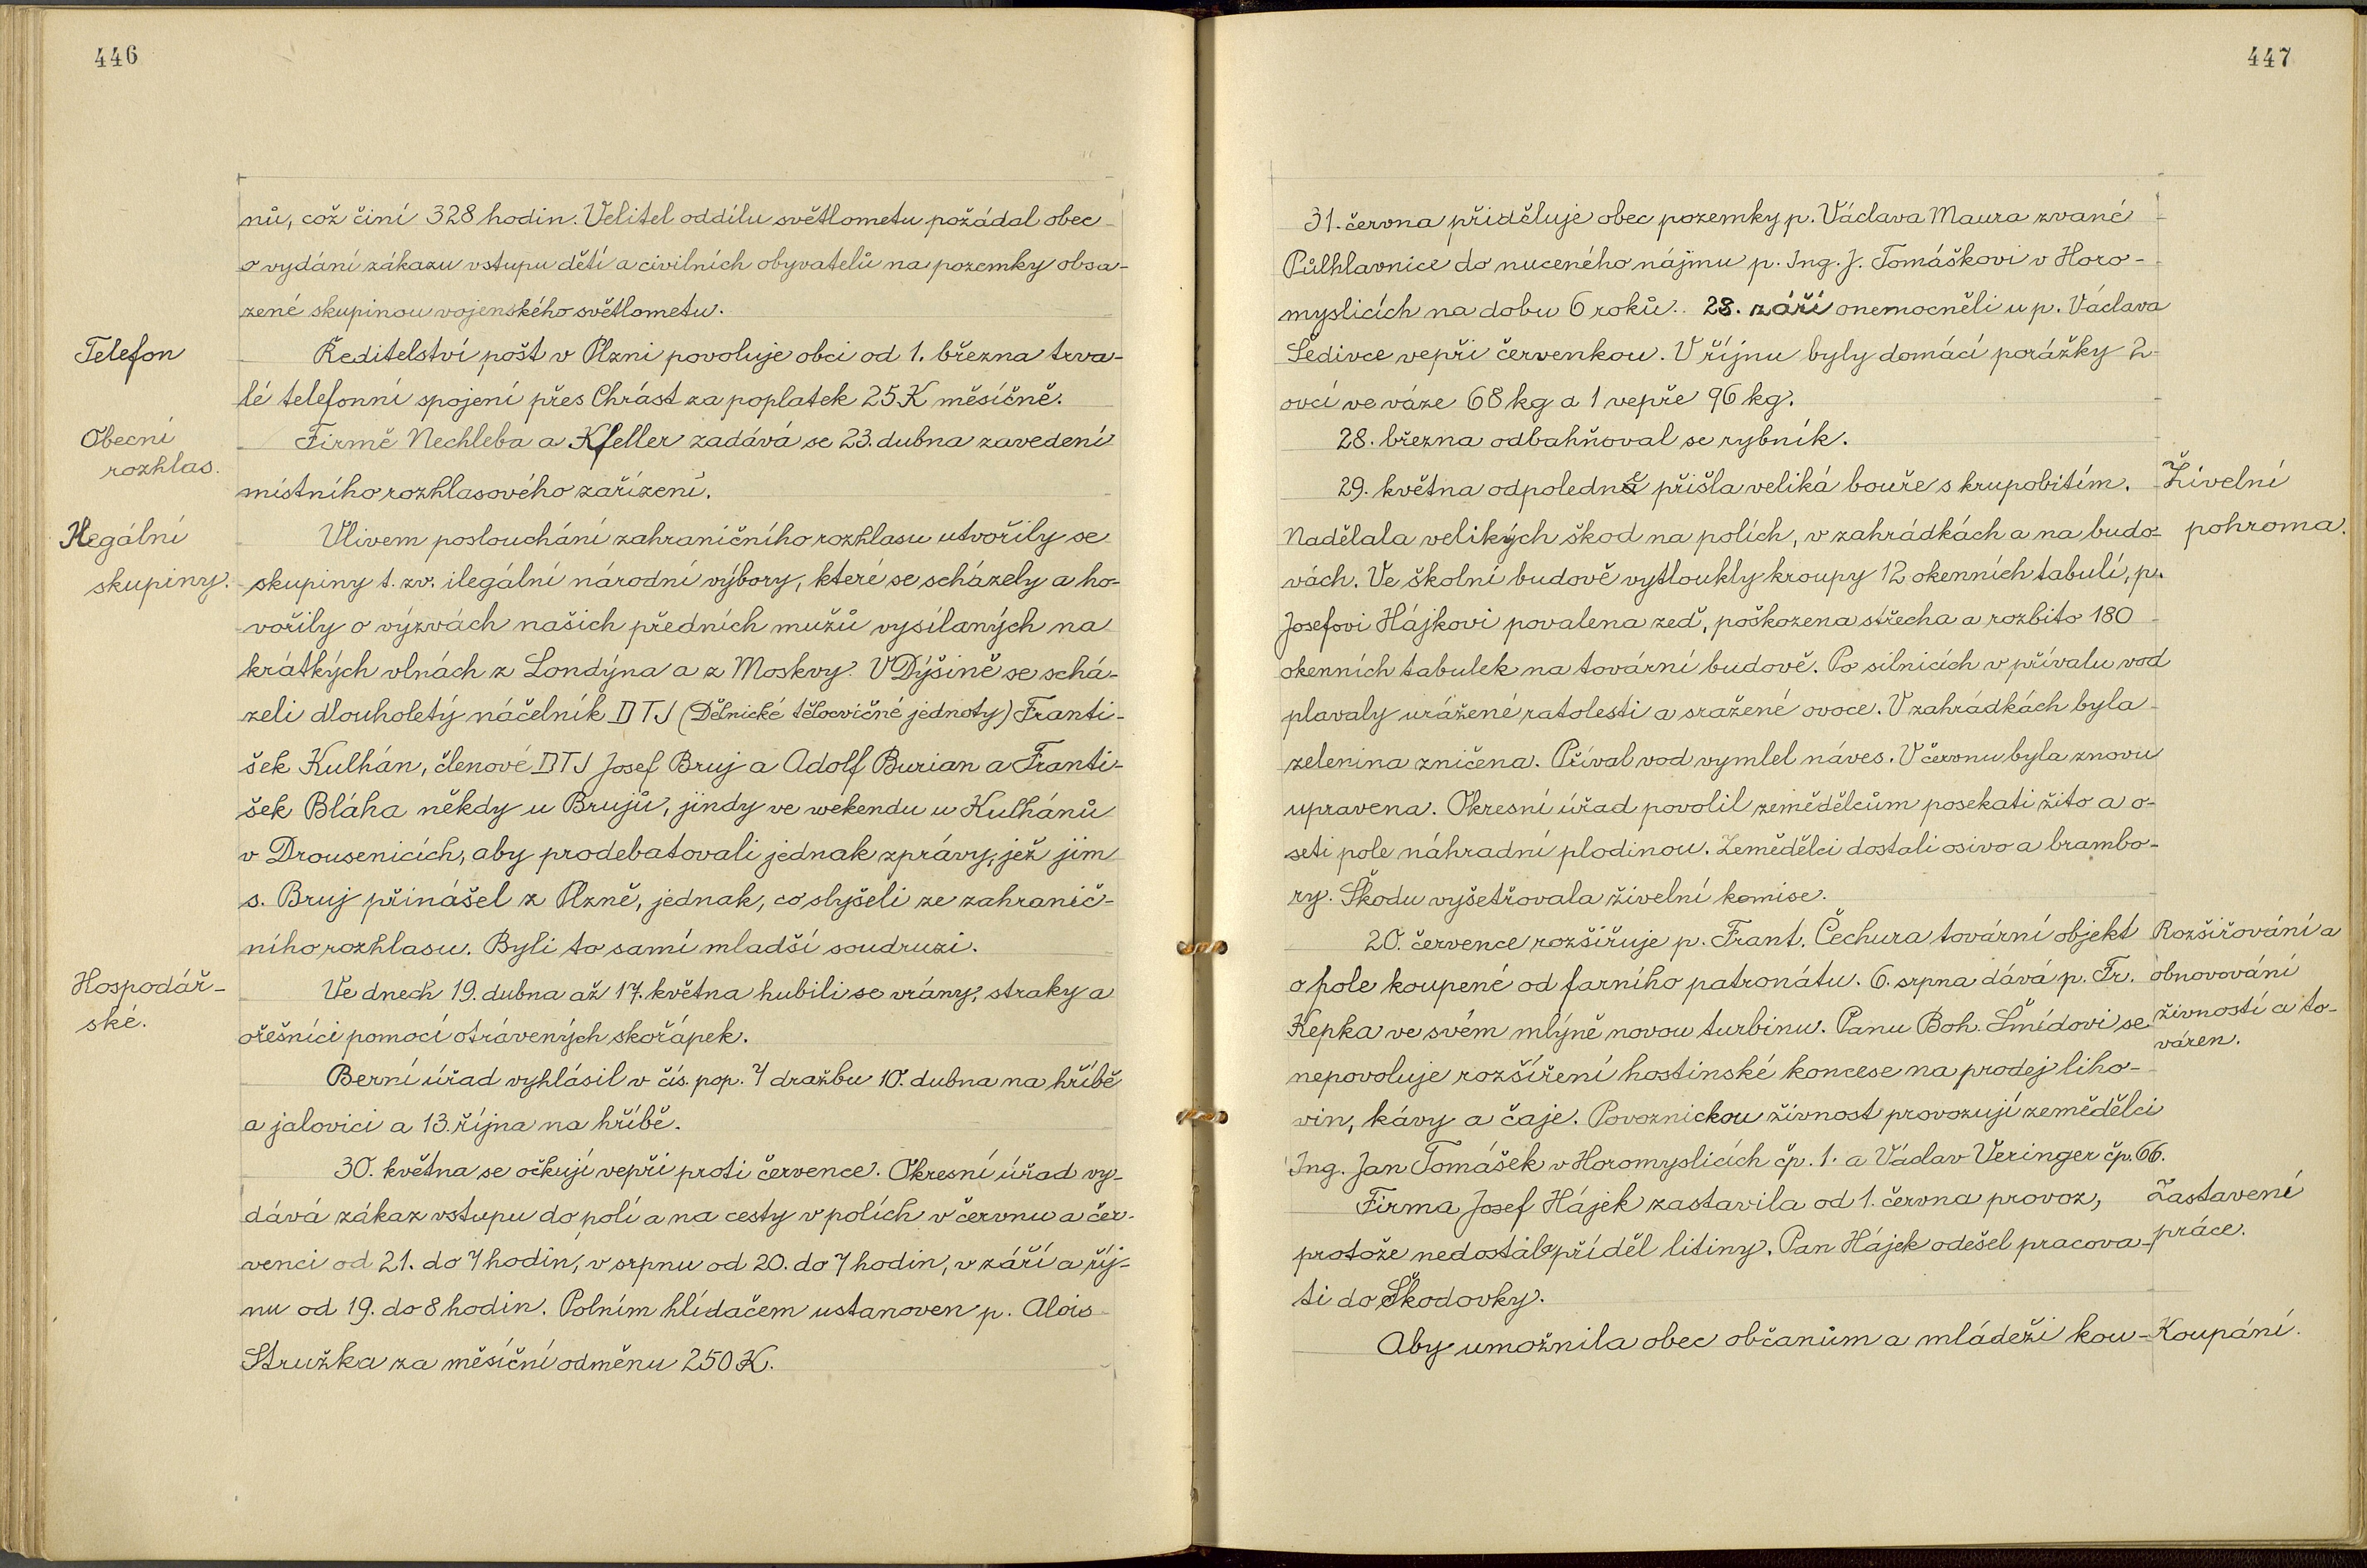 446
nů, což činí 328 hodin. Velitel oddílu světlometu požádal obec
o vydání zákazu vstupu dětí a civilních obyvatelů na pozemky obsa-
zené skupinou vojenského světlometu.
Telefon
Ředitelství pošt v Plzni povoluje obci od 1. března trva-
lé telefonní spojení přes Chrást za poplatek 25 K měsíčně.
Obecní
rozhlas.
Firmě Nechleba a Kfeller zadává se 23. dubna zavedení
místního rozhlasového zařízení.
Ilegální
skupiny.
Vlivem poslouchání zahraničního rozhlasu utvořily se
skupiny t. zv. ilegální národní výbory, které se scházely a ho-
vořily o výzvách našich předních mužů vysílaných na
krátkých vlnách z Londýna a z Moskvy. V Dýšině se schá-
zeli dlouholetý náčelník DTJ (Dělnické tělocvičné jednoty) Franti-
šek Kulhán, členové DTJ Josef Bruj a Adolf Burian a Franti-
šek Bláha někdy u Brujů, jindy ve wekendu u Kulhánů
v Drousenicích, aby prodebatovali jednak zprávy, jež jim
s. Bruj přinášel z Plzně, jednak, co slyšeli ze zahranič-
ního rozhlasu. Byli to samí mladší soudruzi.
Hospodář-
ské.
Ve dnech 19. dubna až 17. května hubili se vrány, straky a
ořešníci pomocí otrávených skořápek.
Berní úřad vyhlásil v čís. pop. 7 dražbu 10. dubna na hříbě
a jalovici a 13. října na hříbě.
30. května se očkují vepři proti července. Okresní úřad vy-
dává zákaz vstupu do polí a na cesty v polích v červnu a čer-
venci od 21. do 7 hodin, v srpnu od 20. do 7 hodin, v září a říj-
nu od 19. do 8 hodin. Polním hlídačem ustanoven p. Alois
Stružka za měsíční odměnu 250 K.
447
31. června přiděluje obec pozemky p. Václava Maura zvané
Půlhlavnice do nuceného nájmu p. Ing. J. Tomáškovi v Horo-
myslicích na dobu 6 roků. 28. září onemocněli u p. Václava
Šedivce vepři červenkou. V říjnu byly domácí porážky 2
ovcí ve váze 68 kg a 1 vepře 96 kg.
28. března odbahňoval se rybník.
29. května odpoledne přišla veliká bouře s krupobitím.
Živelní
pohroma.
Nadělala velikých škod na polích, v zahrádkách a na budo-
vách. Ve školní budově vytloukly kroupy 12 okenních tabulí, p.
Josefovi Hájkovi povalena zeď, poškozena střecha a rozbito 180
okenních tabulek na tovární budově. Po silnicích v přívalu vod
plavaly urážené ratolesti a sražené ovoce. V zahrádkách byla
zelenina zničena. Příval vod vymlel náves. V červnu byla znovu
upravena. Okresní úřad povolil zemědělcům posekati žito a o-
seti pole náhradní plodinou. Zemědělci dostali osivo a brambo-
ry. Škodu vyšetřovala živelní komise.
20. července rozšiřuje p. Frant. Čechura tovární objekt
Rozšiřování a
obnovování
živností a to-
váren.
o pole koupené od farního patronátu. 6. srpna dává p. Fr.
Kepka ve svém mlýně novou turbinu. Panu Boh. Šmídovi se
nepovoluje rozšíření hostinské koncese na prodej liho-
vin, kávy a čaje. Povoznickou živnost provozují zemědělci
Ing. Jan Tomášek v Horomyslicích čp. 1. a Václav Veringer čp. 66.
Firma Josef Hájek zastavila od 1. června provoz,
Zastavení
práce.
protože nedostala příděl litiny. Pan Hájek odešel pracova-
ti do Škodovky.
Aby umožnila obec občanům a mládeži kou-
Koupání.